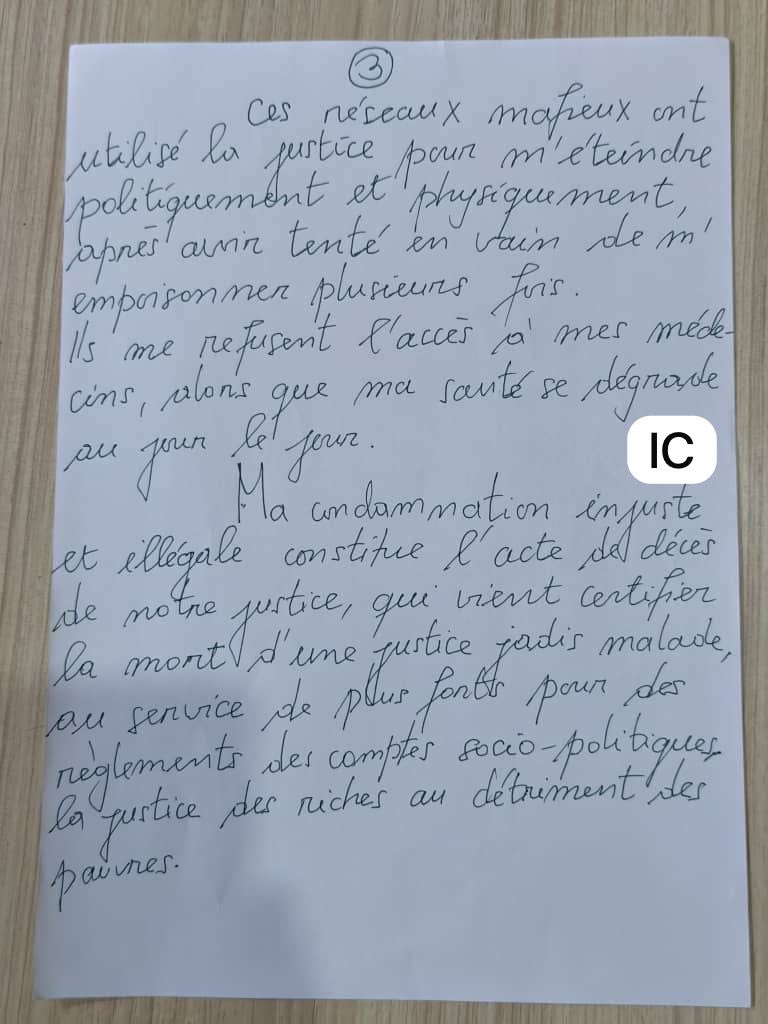 3
Ces réseaux mafieux ont
utilisé la justice pour m'éteindre
politiquement et physiquement,
après avoir tenté en vain de m'
empoisonner plusieurs fois.
Ils me refusent l'accès à mes méde-
cins, alors que ma santé se dégrade
au jour le jour.
IC
Ma condamnation injuste
et illégale constitue l'acte de décès
de notre justice, qui vient certifier
la mort d'une justice jadis malade,
au service de plus forts pour des
règlements des comptes socio-politiques,
la justice des riches au détriment des
pauvres.